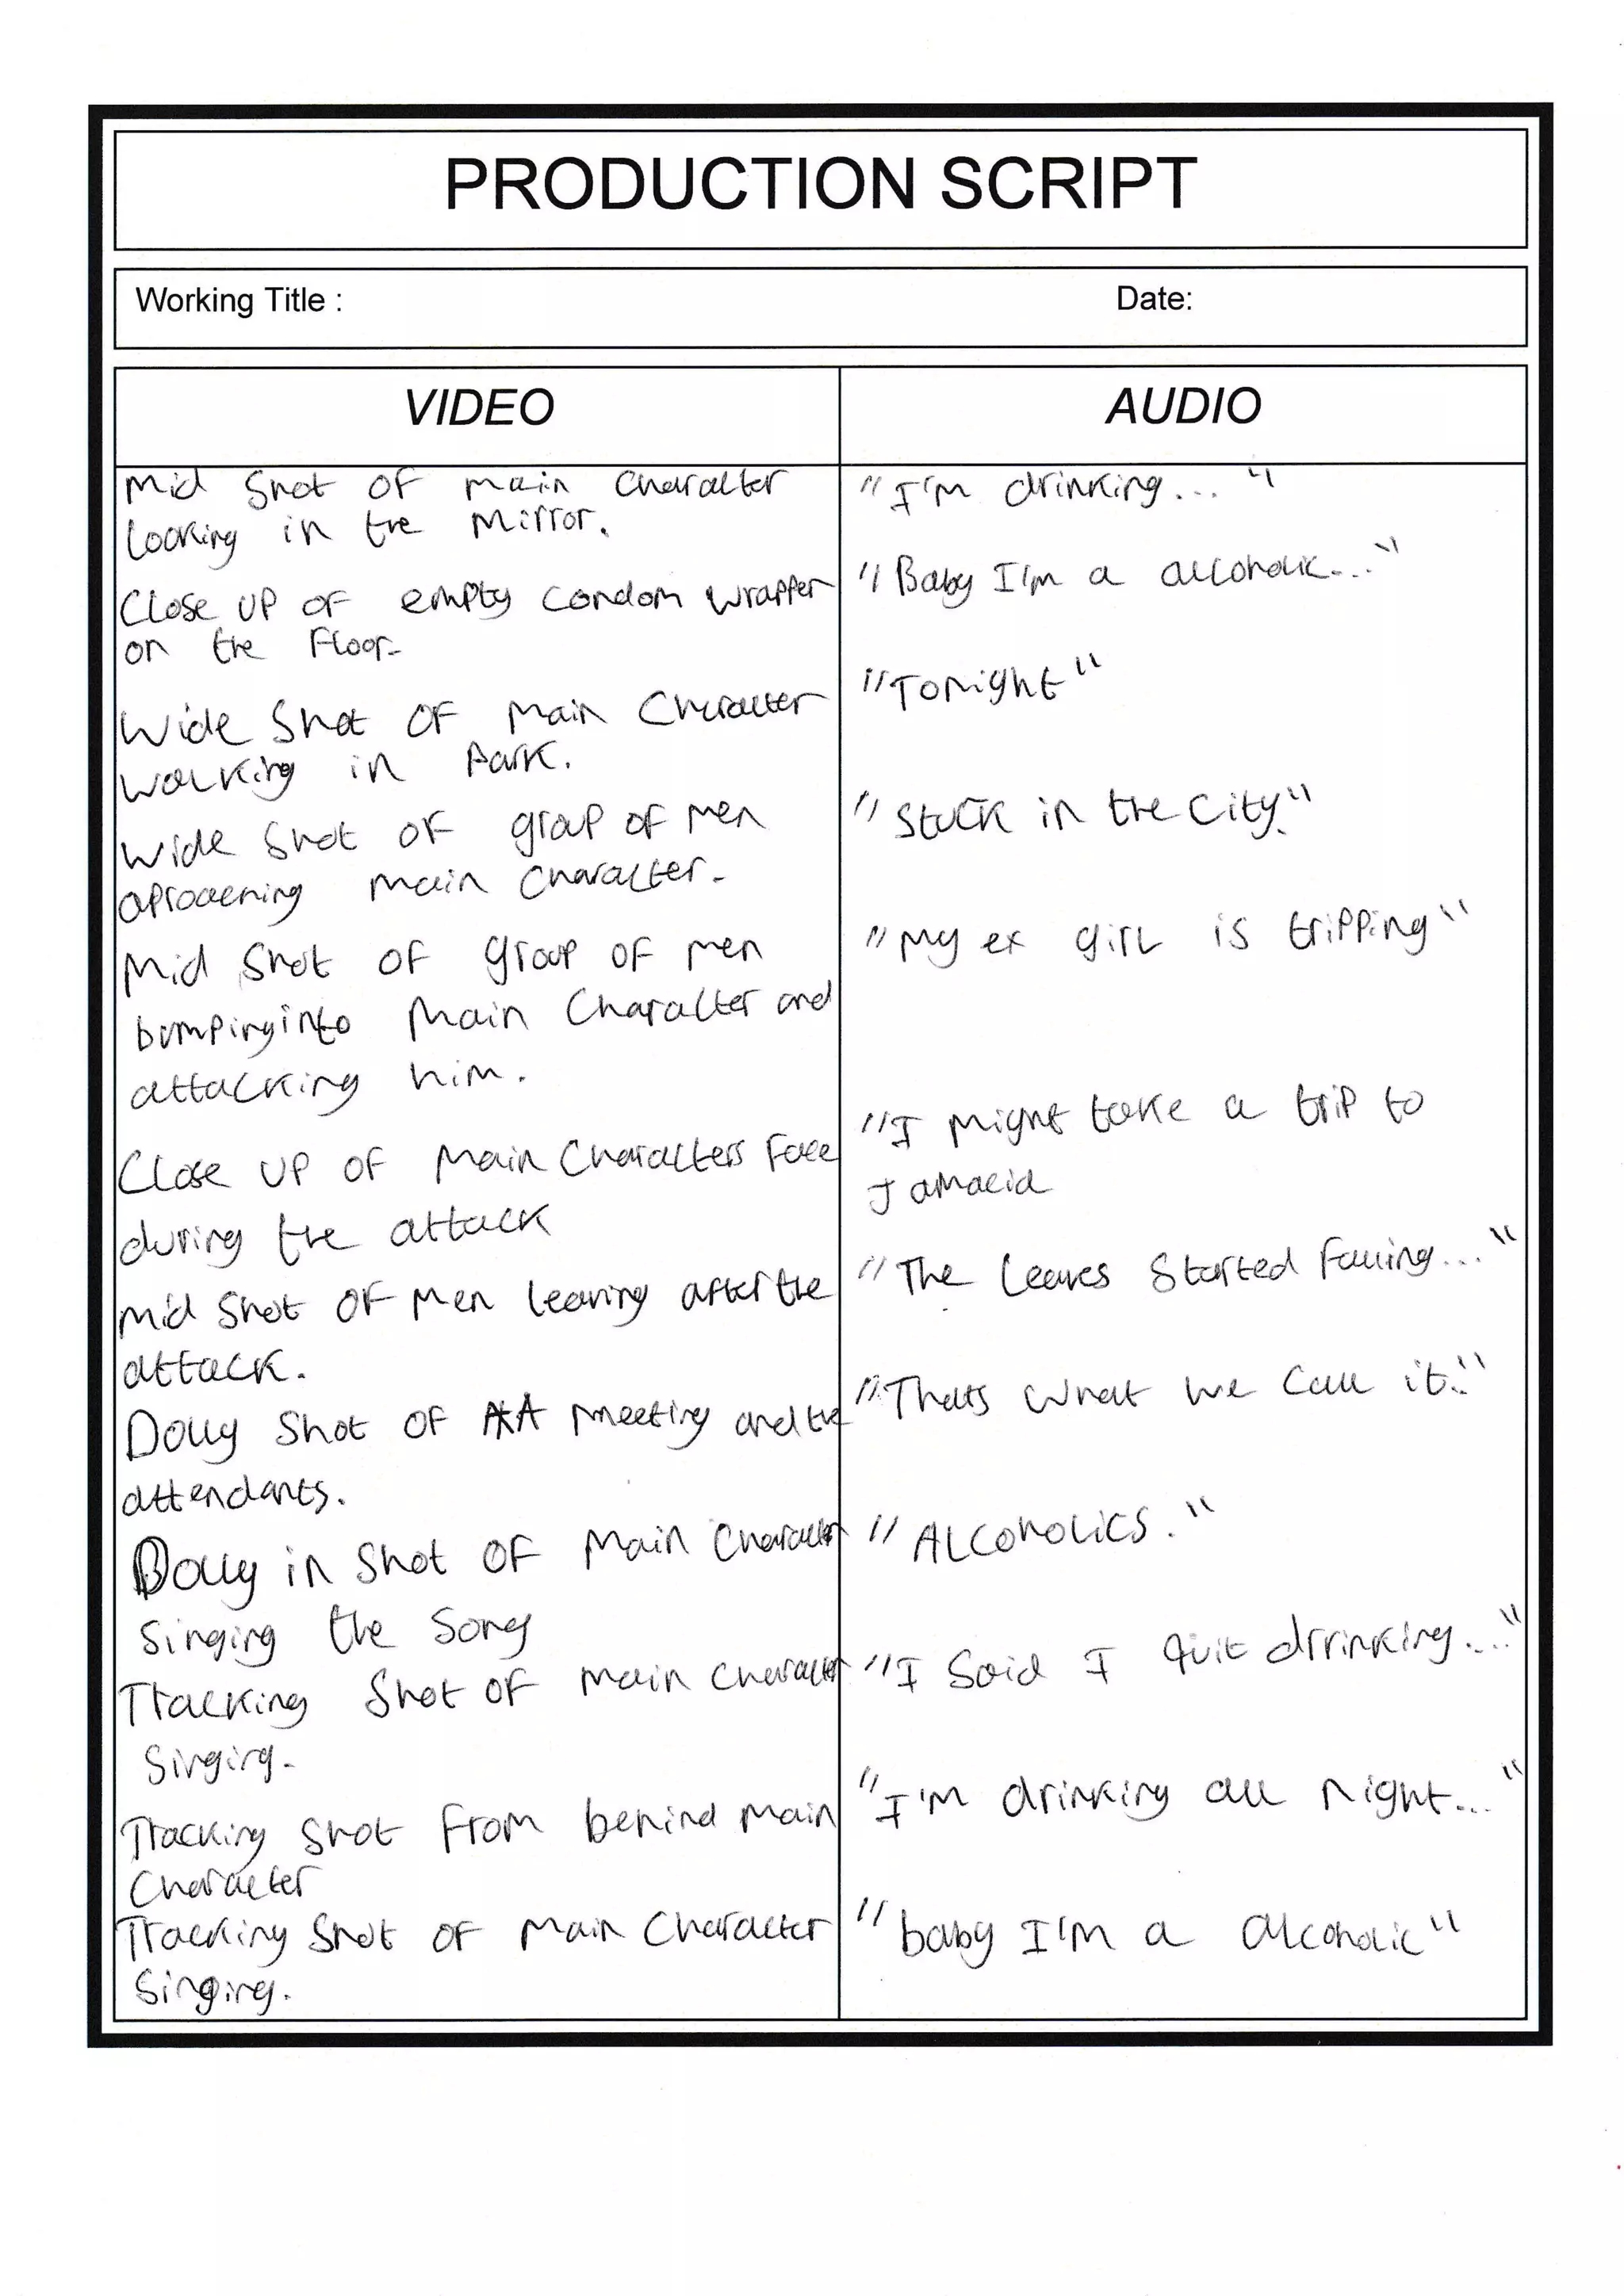 PRODUCTION SCRIPT
Working Title :
Date:
VIDEO
Mid Shot of main Character
Looking in the Mirror.
Close up of empty condom wrapper
on the Floor.
Wide Shot of Main Character
walking in Park.
Wide Shot of group of men
aproaching main Character.
Mid Shot of group of men
bumping into Main Character and
attacking him.
Close up of Main Characters Face
during the attack
Mid Shot of Men leaving after the
attack.
Dolly Shot of AA Meeting and the
attendants.
Dolly in Shot of Main Character
Singing the Song
Tracking Shot of main Character
Singing.
Tracking Shot From behind main
Character
Tracking Shot of Main Character
Singing.
AUDIO
"I'm drinking..."
"Baby I'm a alcoholic..."
"Tonight"
"Stuck in the City."
"My ex girl is tripping"
"I might take a trip to
Jamacia
"The Leaves Started Falling..."
"Thats what we call it."
"ALCOHOLICS."
"I Said I quit drrinking...."
"I'm drinking all Night..."
"baby I'm a alcoholic"